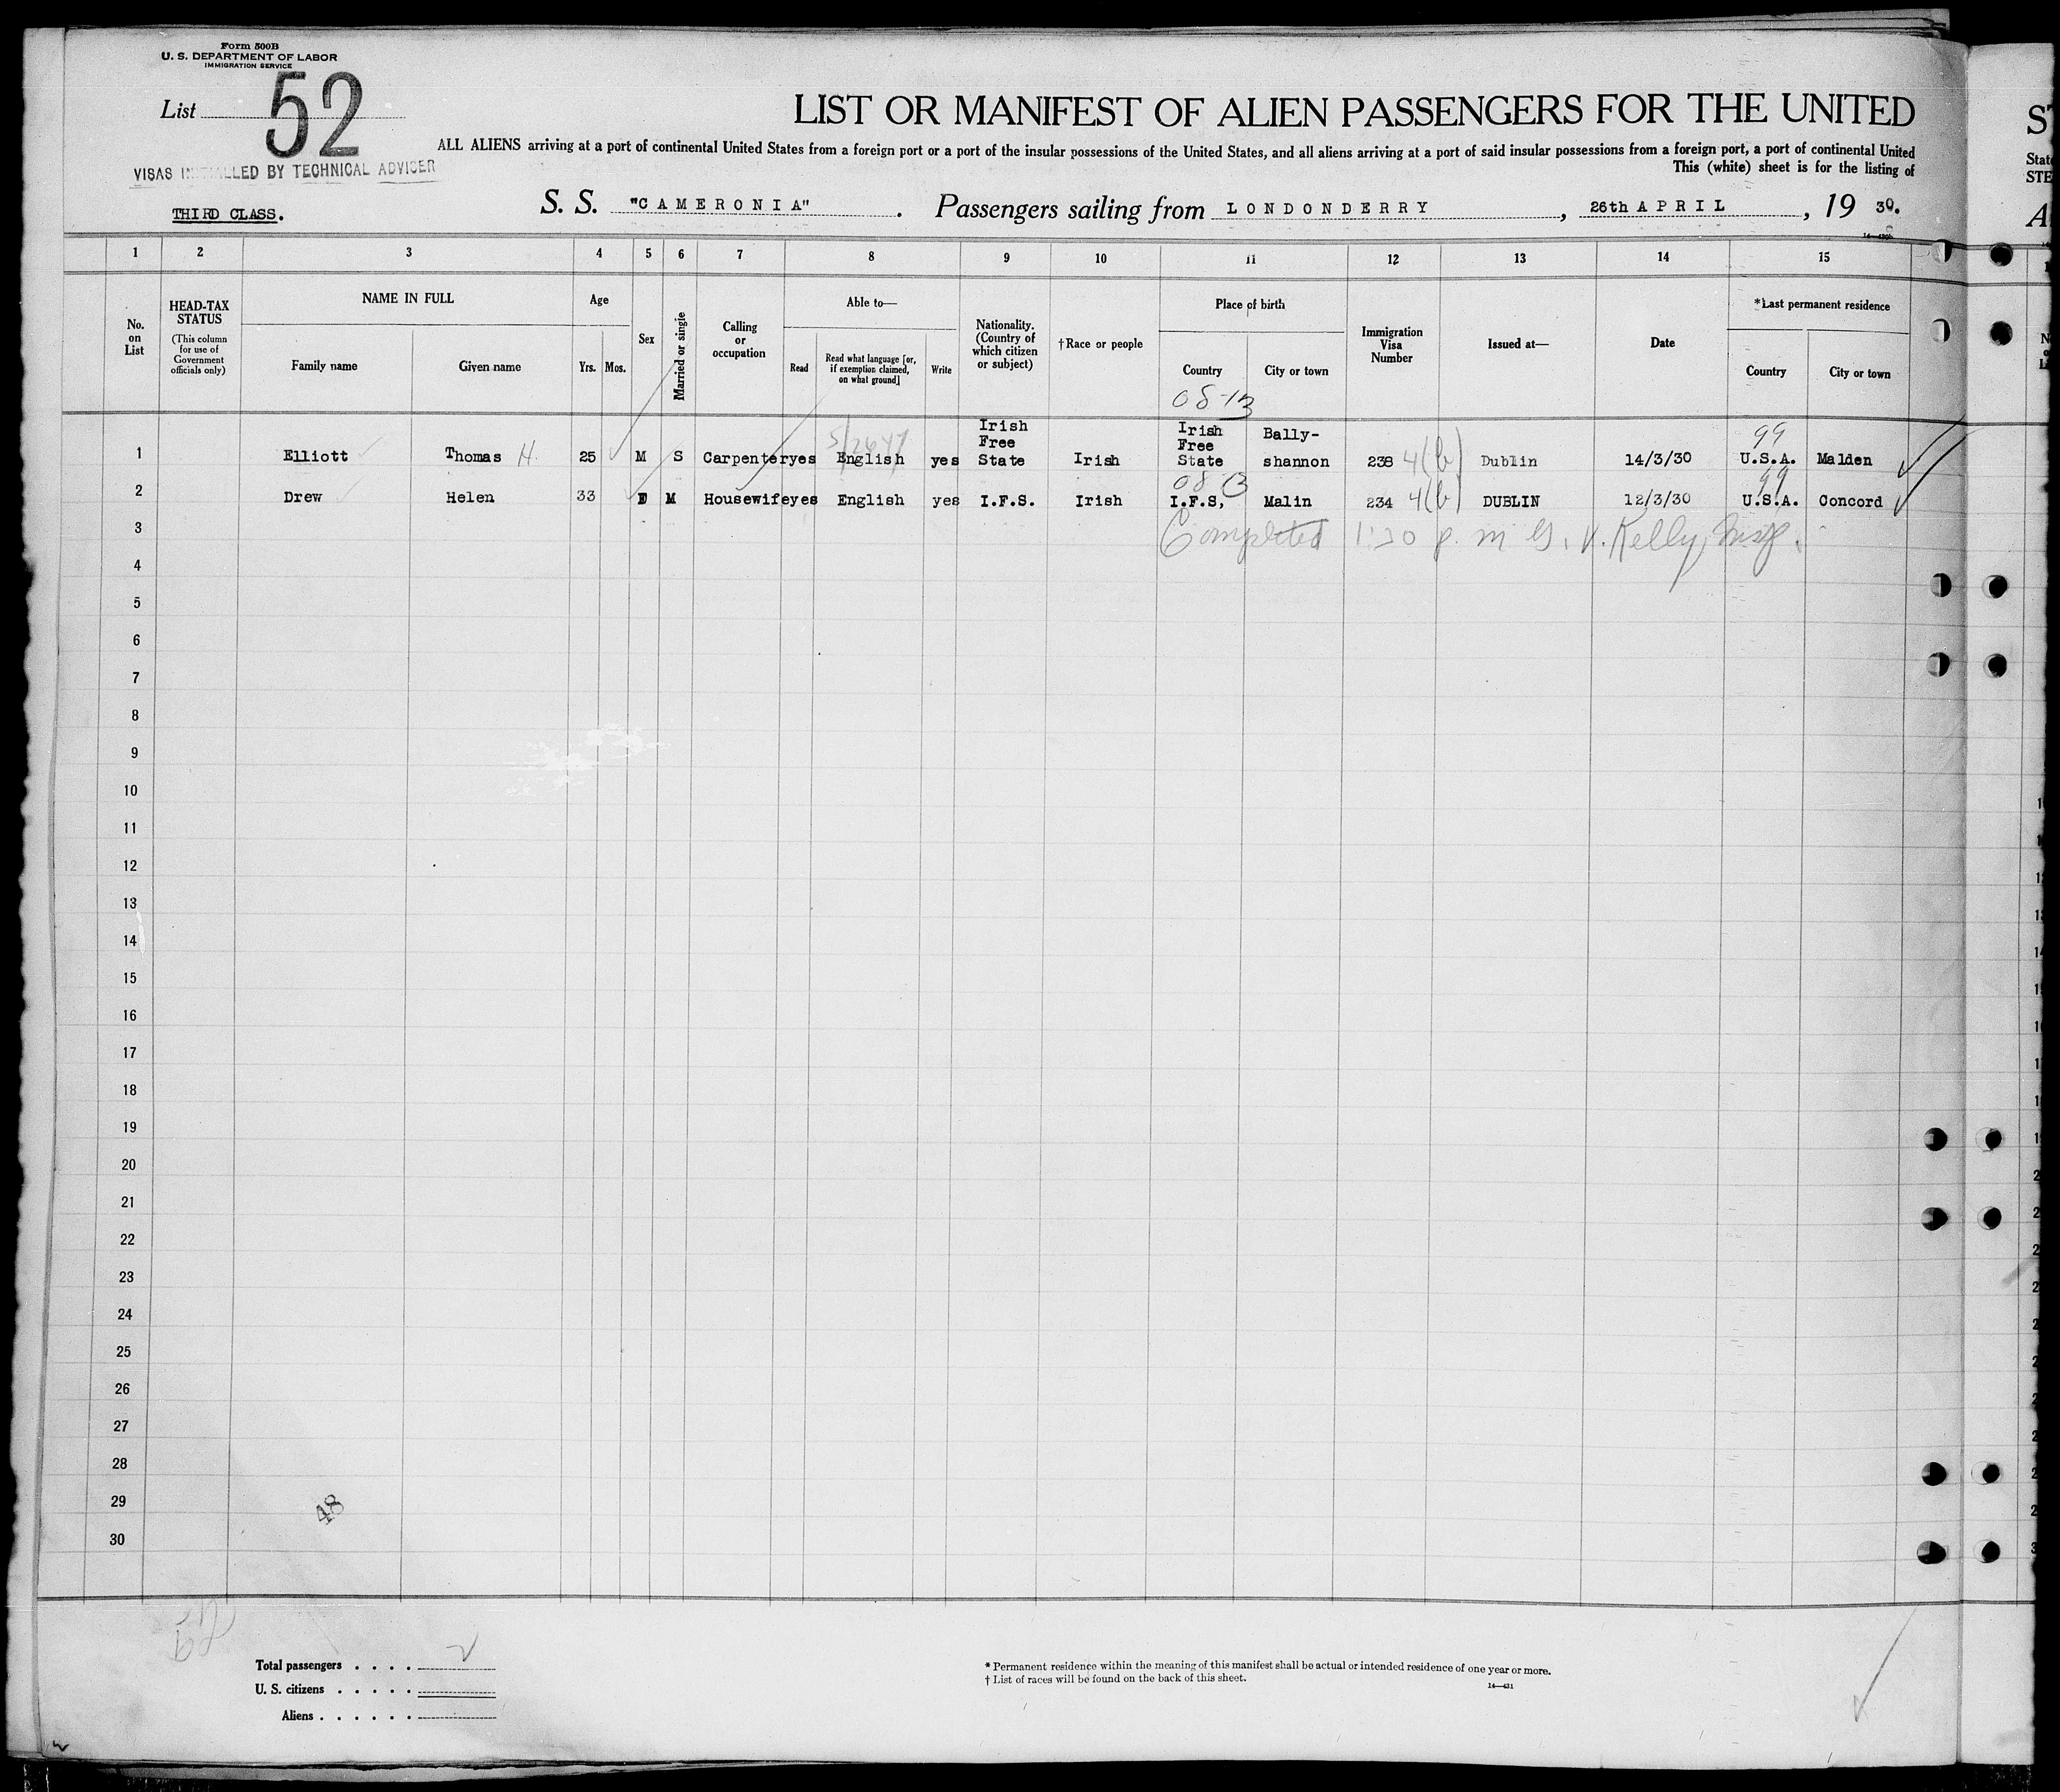 Form 500B
U. S. DEPARTMENT OF LABOR
IMMIGRATION SERVICE
List 52
VISAS INITIALLED BY TECHNICAL ADVISER
THIRD CLASS.
LIST OR MANIFEST OF ALIEN PASSENGERS FOR THE UNITED
ALL ALIENS arriving at a port of continental United States from a foreign port or a port of the insular possessions of the United States, and all aliens arriving at a port of said insular possessions from a foreign port, a port of continental United
This (white) sheet is for the listing of
S. S. "CAMERONIA". Passengers sailing from LONDONDERRY, 26th APRIL, 19 30.
1 2 3 4 5 6 7 8 9 10 11 12 13 14 15
No. on List
HEAD-TAX STATUS
(This column for use of Government officials only)
NAME IN FULL
Family name Given name
Age
Yrs. Mos.
Sex
Married or single
Calling or occupation
Able to—
Read Read what language [or, if exemption claimed, on what ground] Write
Nationality. (Country of which citizen or subject)
†Race or people
Place of birth
Country City or town
Immigration Visa Number
Issued at—
Date
*Last permanent residence
Country City or town
08-13
1 Elliott Thomas H. 25 M S Carpenter yes English yes Irish Free State Irish Irish Free State Bally-shannon 238 4(b) Dublin 14/3/30 99 U.S.A. Malden
2 Drew Helen 33 F M Housewife yes English yes I.F.S. Irish I.F.S, Malin 234 4(b) DUBLIN 12/3/30 99 U.S.A. Concord
3 Completed p. m Kelly, Insp.
4
5
6
7
8
9
10
11
12
13
14
15
16
17
18
19
20
21
22
23
24
25
26
27
28
29
30
48
Total passengers . . . . 2
U. S. citizens . . . . .
Aliens . . . . . .
* Permanent residence within the meaning of this manifest shall be actual or intended residence of one year or more.
† List of races will be found on the back of this sheet.
14—431